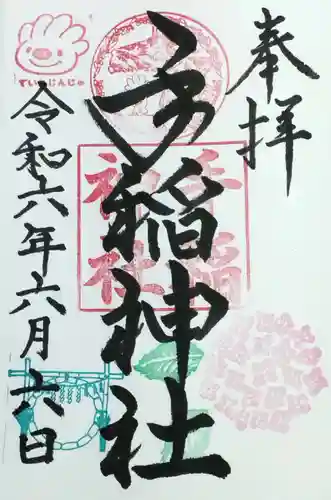 奉拝
手稲神社
令和六年六月六日
手稲
神社
ていねじんじゃ